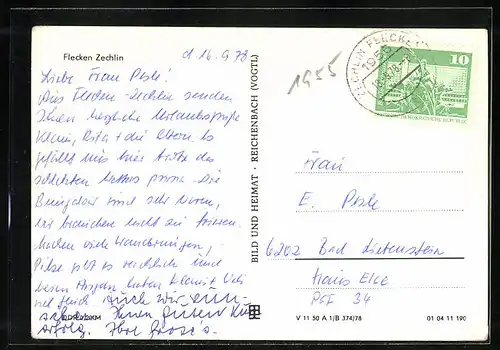 Flecken Zechlin
d. 16.9.78
Liebe Frau Pesle!
Aus Flecken-Zechlin senden
Ihnen herzliche Urlaubsgrüße
Klaus, Rita + die Eltern. Es
gefällt uns hier trotz des
schlechten Wetters prima. Die
Bungalows sind sehr warm,
wir brauchen nicht zu frieren.
Machen viele Wanderungen,
Pilze gibt es reichlich und
beim Angeln haben Klaus + Vati
viel Auch wir wün-
schen Ihnen guten Kur
erfolg. Ihre
BILD UND HEIMAT · REICHENBACH (VOGTL)
1955
1955
10
DEMOKRATISCHE REPUBLIK
Frau
E. Pesle
6202 Bad Liebenstein
Haus Elke
PSF 34
V 11 50 A 1/B 374/78 01 04 11 190